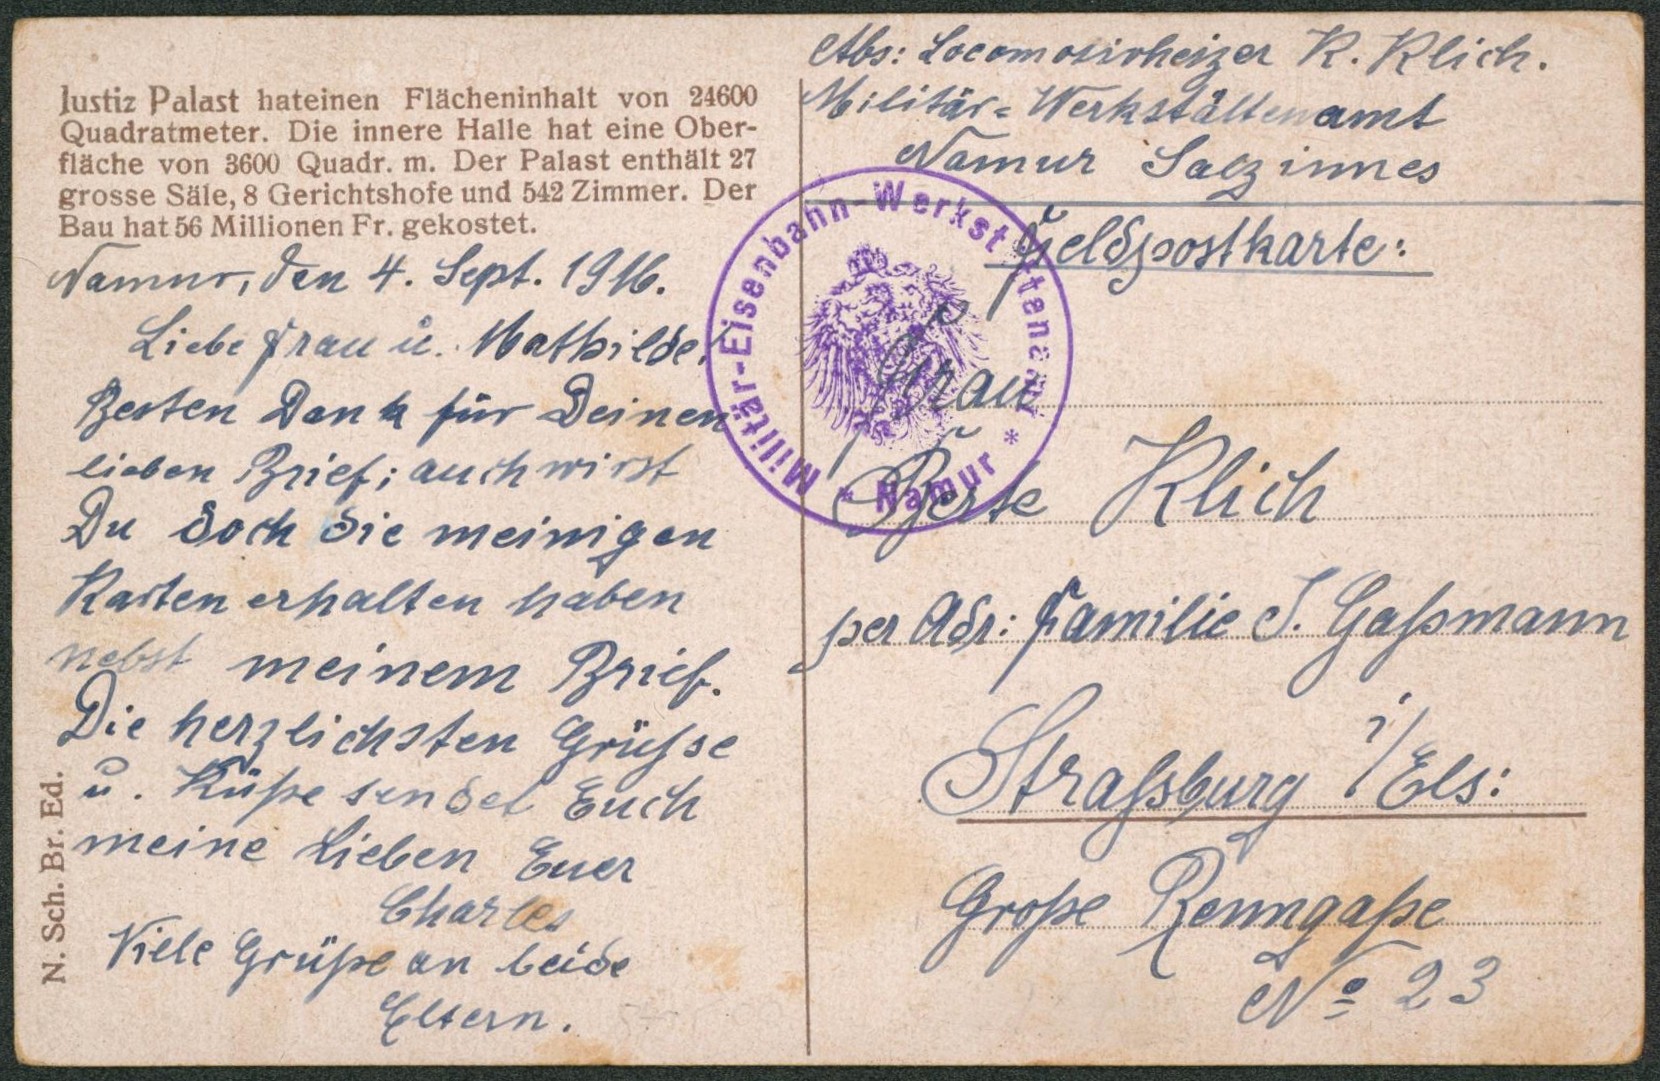 Justiz Palast hateinen Flächeninhalt von 24600
Quadratmeter. Die innere Halle hat eine Ober-
fläche von 3600 Quadr. m. Der Palast enthält 27
grosse Säle, 8 Gerichtshofe und 542 Zimmer. Der
Bau hat 56 Millionen Fr. gekostet.
Namur, den 4. Sept. 1916.
Liebe Frau u. Mathilde,
Besten Dank für Deinen
lieben Brief; auch wirst
Du doch die meinigen
Karten erhalten haben
nebst meinem Brief.
Die herzlichsten Grüsse
u. Küße sendet Euch
meine Lieben Euer
Charles
Viele Grüße an beide
Eltern.
N. Sch. Br. Ed.
Abs: Locomotivheizer K. Klich.
Militär=Werkstättenamt
Namur Salzinnes
Feldpostkarte:
Militär-Eisenbahn-Werkstättenamt
* Namur *
Frau
Klich
per Adr: Familie J. Gaßmann
Strassburg i/Els:
Große Renngaße
No 23